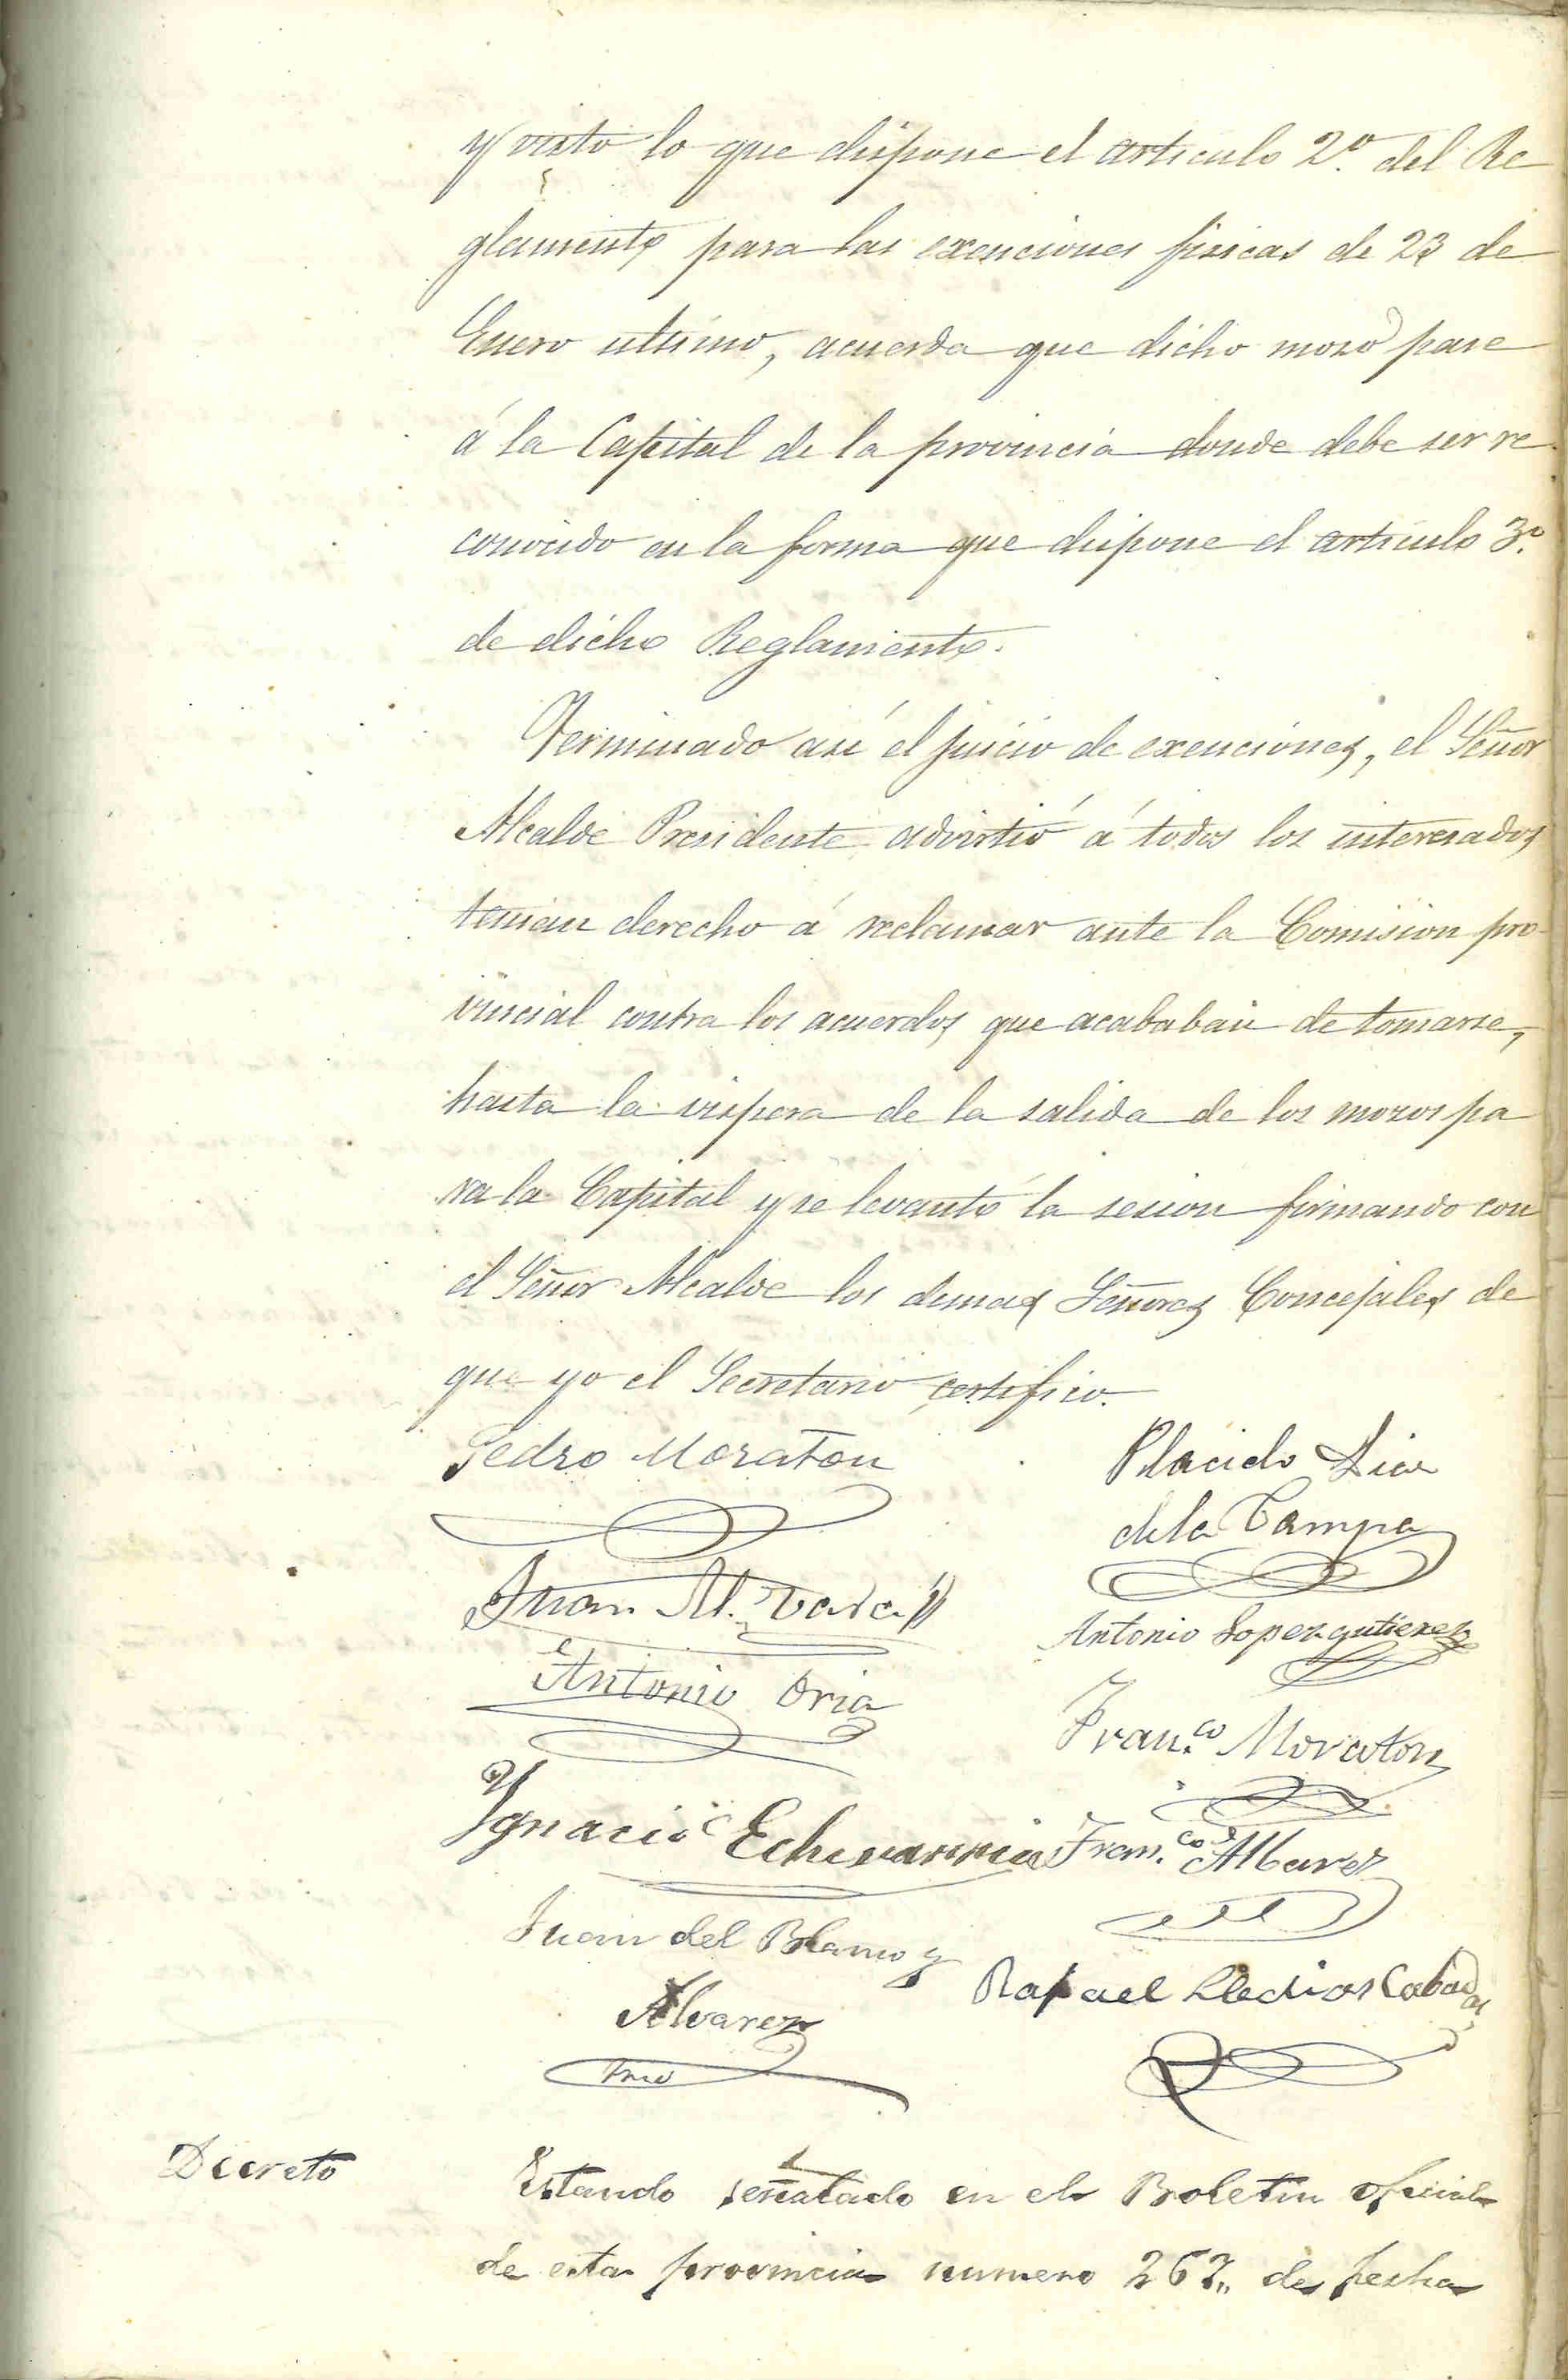 y visto lo que dispone el articulo 2º. del Re
glamento para las exenciones fisicas de 23 de
Enero ultimo, acuerda que dicho mozo pase
á la Capital de la provincia donde debe ser re
conocido en la forma que dispone el articulo 3º.
de dicho Reglamento.
Terminado asi el juicio de exenciones, el Señor
Alcalde Presidente advirtió á todos los interesados
tenian derecho á reclamar ante la Comision pro-
vincial contra los acuerdos que acababan de tomarse,
hasta la vispera de la salida de los mozos pa
ra la Capital y se levantó la sesion firmando con
el Señor Alcalde los demas Señores Concejales de
que yo el Secretario certifico.
Pedro Moraton
Placido Dias
de la Campa
Juan M.
Antonio Lopez gutierrez
Antonio Oria
Fran.co Moraton
Ygnacio Echevarria
Fran.co Albarez
Juan del Blanco y
Alvarez
Rafael Lledias Cabadas
Decreto
Estando señalado en el Boletin oficial
de esta provincia numero 267,, de fecha